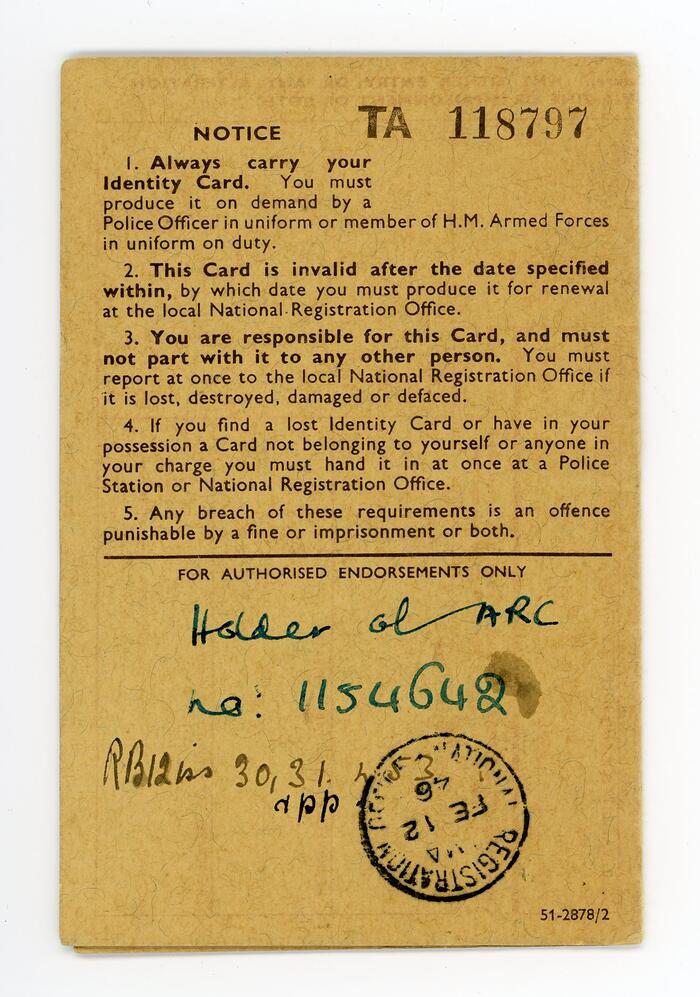 NOTICE TA 118797
1. Always carry your
Identity Card. You must
produce it on demand by a
Police Officer in uniform or member of H.M. Armed Forces
in uniform on duty.
2. This Card is invalid after the date specified
within, by which date you must produce it for renewal
at the local National Registration Office.
3. You are responsible for this Card, and must
not part with it to any other person. You must
report at once to the local National Registration Office if
it is lost, destroyed, damaged or defaced.
4. If you find a lost Identity Card or have in your
possession a Card not belonging to yourself or anyone in
your charge you must hand it in at once at a Police
Station or National Registration Office.
5. Any breach of these requirements is an offence
punishable by a fine or imprisonment or both.
FOR AUTHORISED ENDORSEMENTS ONLY
Holder of ARC
no: 1154642
RB12 iss 30, 31.
app
NATIONAL REGISTRATION OFFICE
FE 12
46
51-2878/2